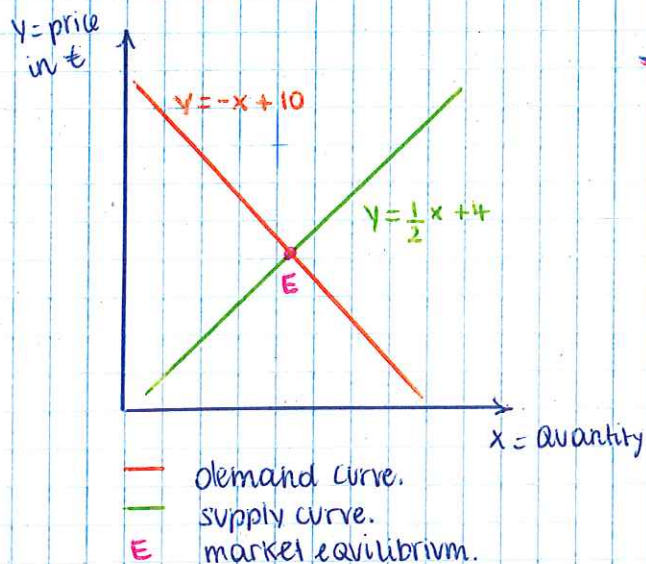 y = price
in £
y = -x + 10
y = 1/2 x + 4
E
x = Quantity
demand curve.
supply curve.
E market equilibrium.